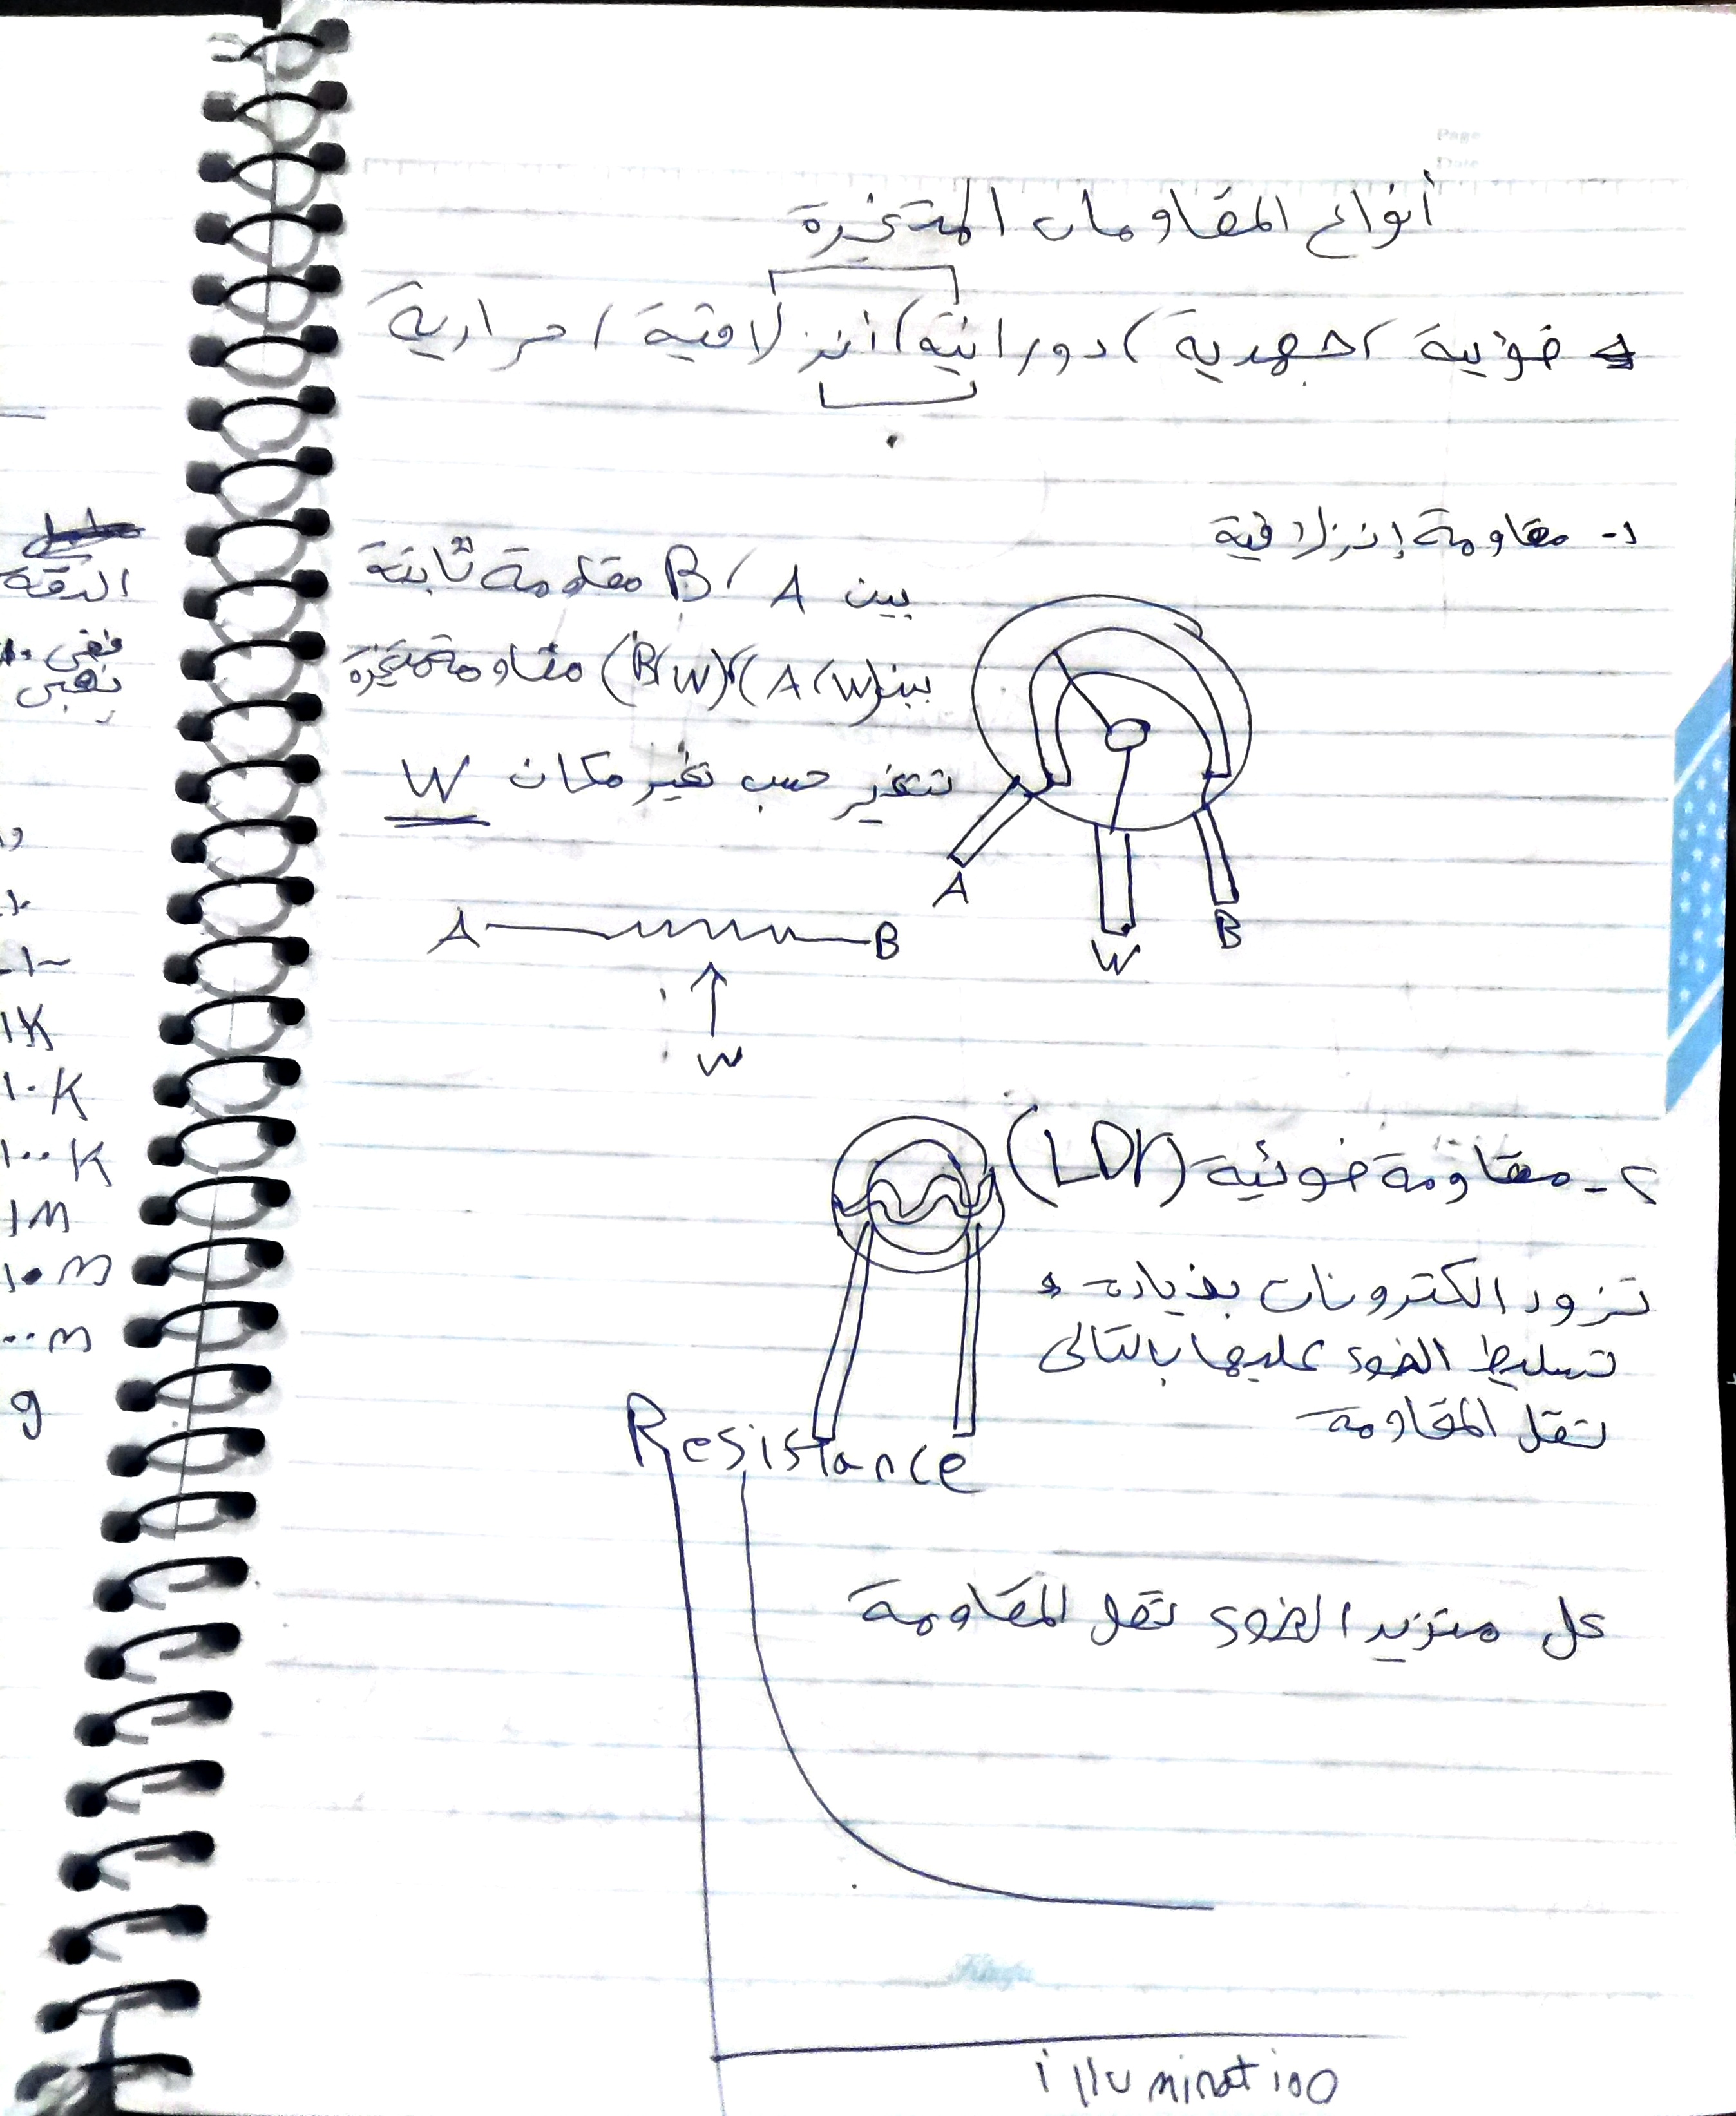 Page
Date
أنواع المقاومات المتغيرة
ضوئية / جهدية / دورانية / أنزلاقية / حرارية
١- مقاومة إنزلاقية
بين A / B مقاومة ثابتة
بين (A/W) (B/W) مقاومة متغيرة
تتغير حسب تغير مكان W
A
W
B
A B
W
٢- مقاومة ضوئية (LDr)
تزود الكترونات بذيادة
تسليط الضوء عليها بالتالى
تقل المقاومة
Resistance
كل متزيد الضوء تقل المقاومة
illumination
الدقة
1K
١٠K
١٠٠K
1M
١٠M
٠٠M
9